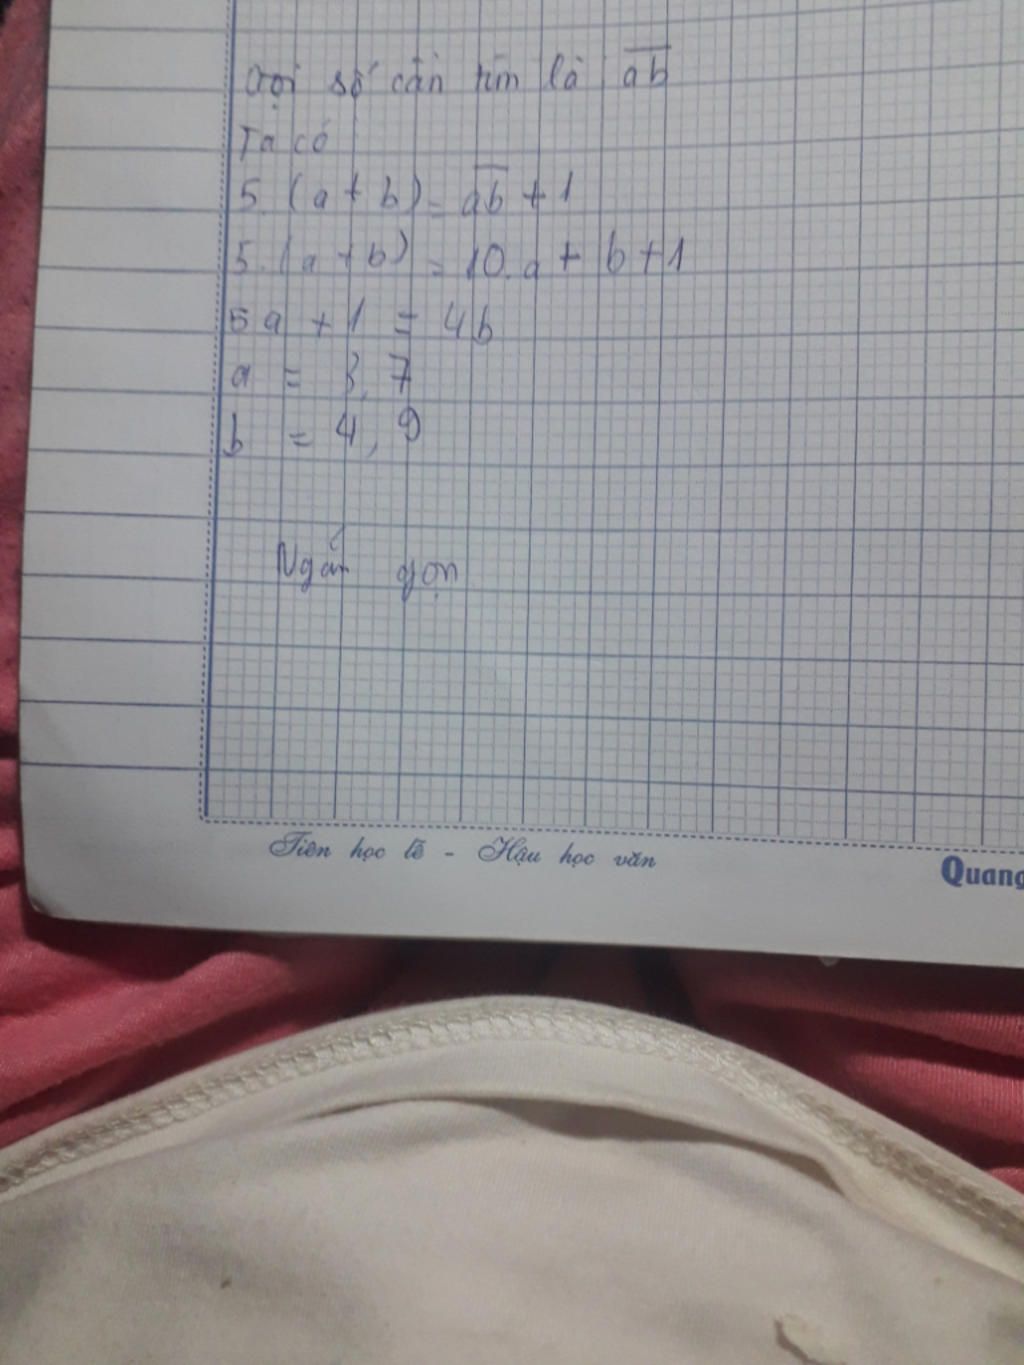 Gọi số cần tìm là ab
Ta có
5.(a + b) = ab + 1
5.(a + b) = 10.a + b + 1
5a + 1 = 4b
a = 3, 7
b = 4, 9
Ngắn gọn
Tiên học lễ - Hậu học văn
Quang